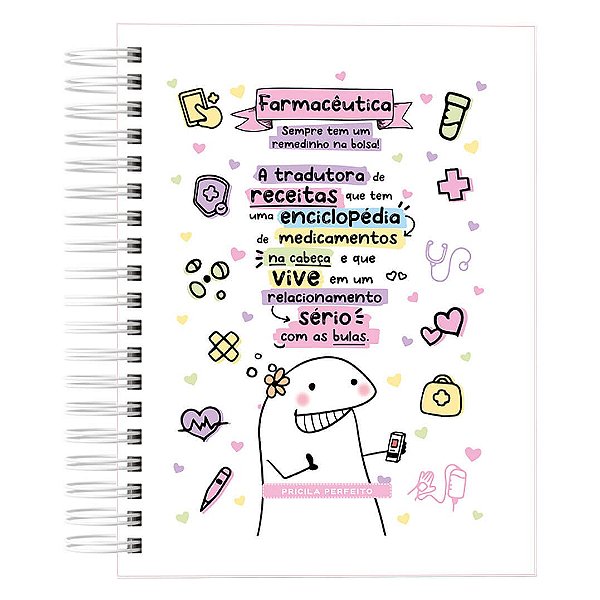 Farmacêutica
Sempre tem um
remedinho na bolsa!
A tradutora de
receitas que tem
uma enciclopédia
de medicamentos
na cabeça e que
vive em um
relacionamento
sério
com as bulas.
PRICILA PERFEITO